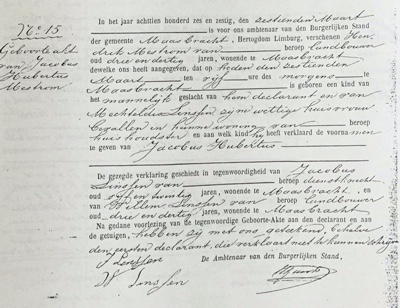 N° 15
Geboorte akt
van Jacobus
Hubertus
Mestrom
In het jaar achttien honderd zes en zestig, den zestienden Maart
is voor ons ambtenaar van den Burgerlijken Stand
der gemeente Maasbracht, Hertogdom Limburg, verschenen Hen
drik Mestrom van beroep landbouwer
oud drie en dertig jaren, wonende te Maasbracht
dewelke ons heeft aangegeven, dat op heden den zestienden
Maart ten vijf ure des morgens te
Maasbracht is geboren een kind van
het mannelijk geslacht van hem declarant en van
Mechtildis Linssen zijne wettige huisvrouw
bevallen in hunne woning van beroep
huishoudster en aan welk kind hij heeft verklaard de voornamen
te geven van Jacobus Hubertus
De gezegde verklaring geschiedt in tegenwoordigheid van Jacobus
Linssen van beroep dienstknecht
oud vijf en twintig jaren, wonende te Maasbracht en
van Willem Linssen van beroep landbouwer
oud drie en dertig jaren, wonende te Maasbracht
Na gedane voorlezing van de tegenwoordige Geboorte-Akte aan den declarant en aan
de getuigen, hebben zij met ons geteekend, behalve
den eersten declarant, die verklaart niet te kunnen schrijven
J Linssen De Ambtenaar van den Burgerlijken Stand,
W Linssen